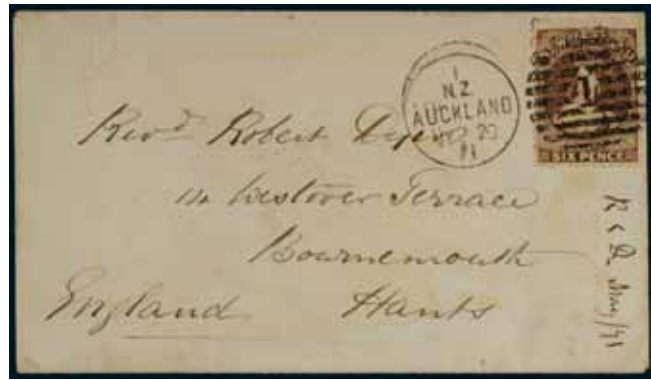 1
N.Z.
AUCKLAND
20
71
1
SIX PENCE
Revd Robert Dyer
14 Westover Terrace
Bournemouth
England Hants
May/71